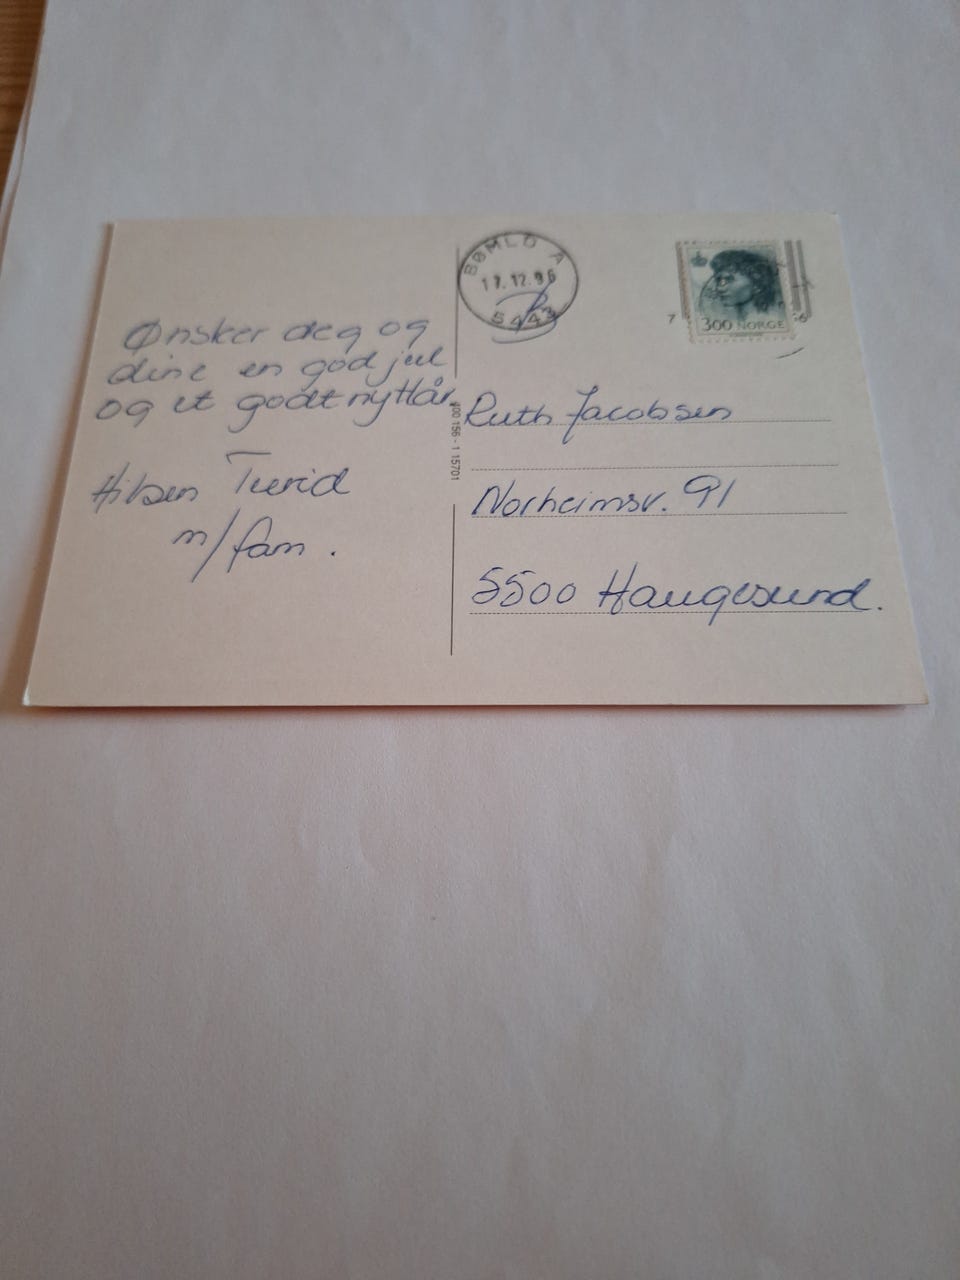 Ønsker deg og
dine en god jul
og et godt nyttår.
Hilsen Turid
m/fam.
BØMLO A
17.12.96
5443
300 NORGE
400 156 - 1 15701
Ruth Jacobsen
Norheimsv. 91
5500 Haugesund.